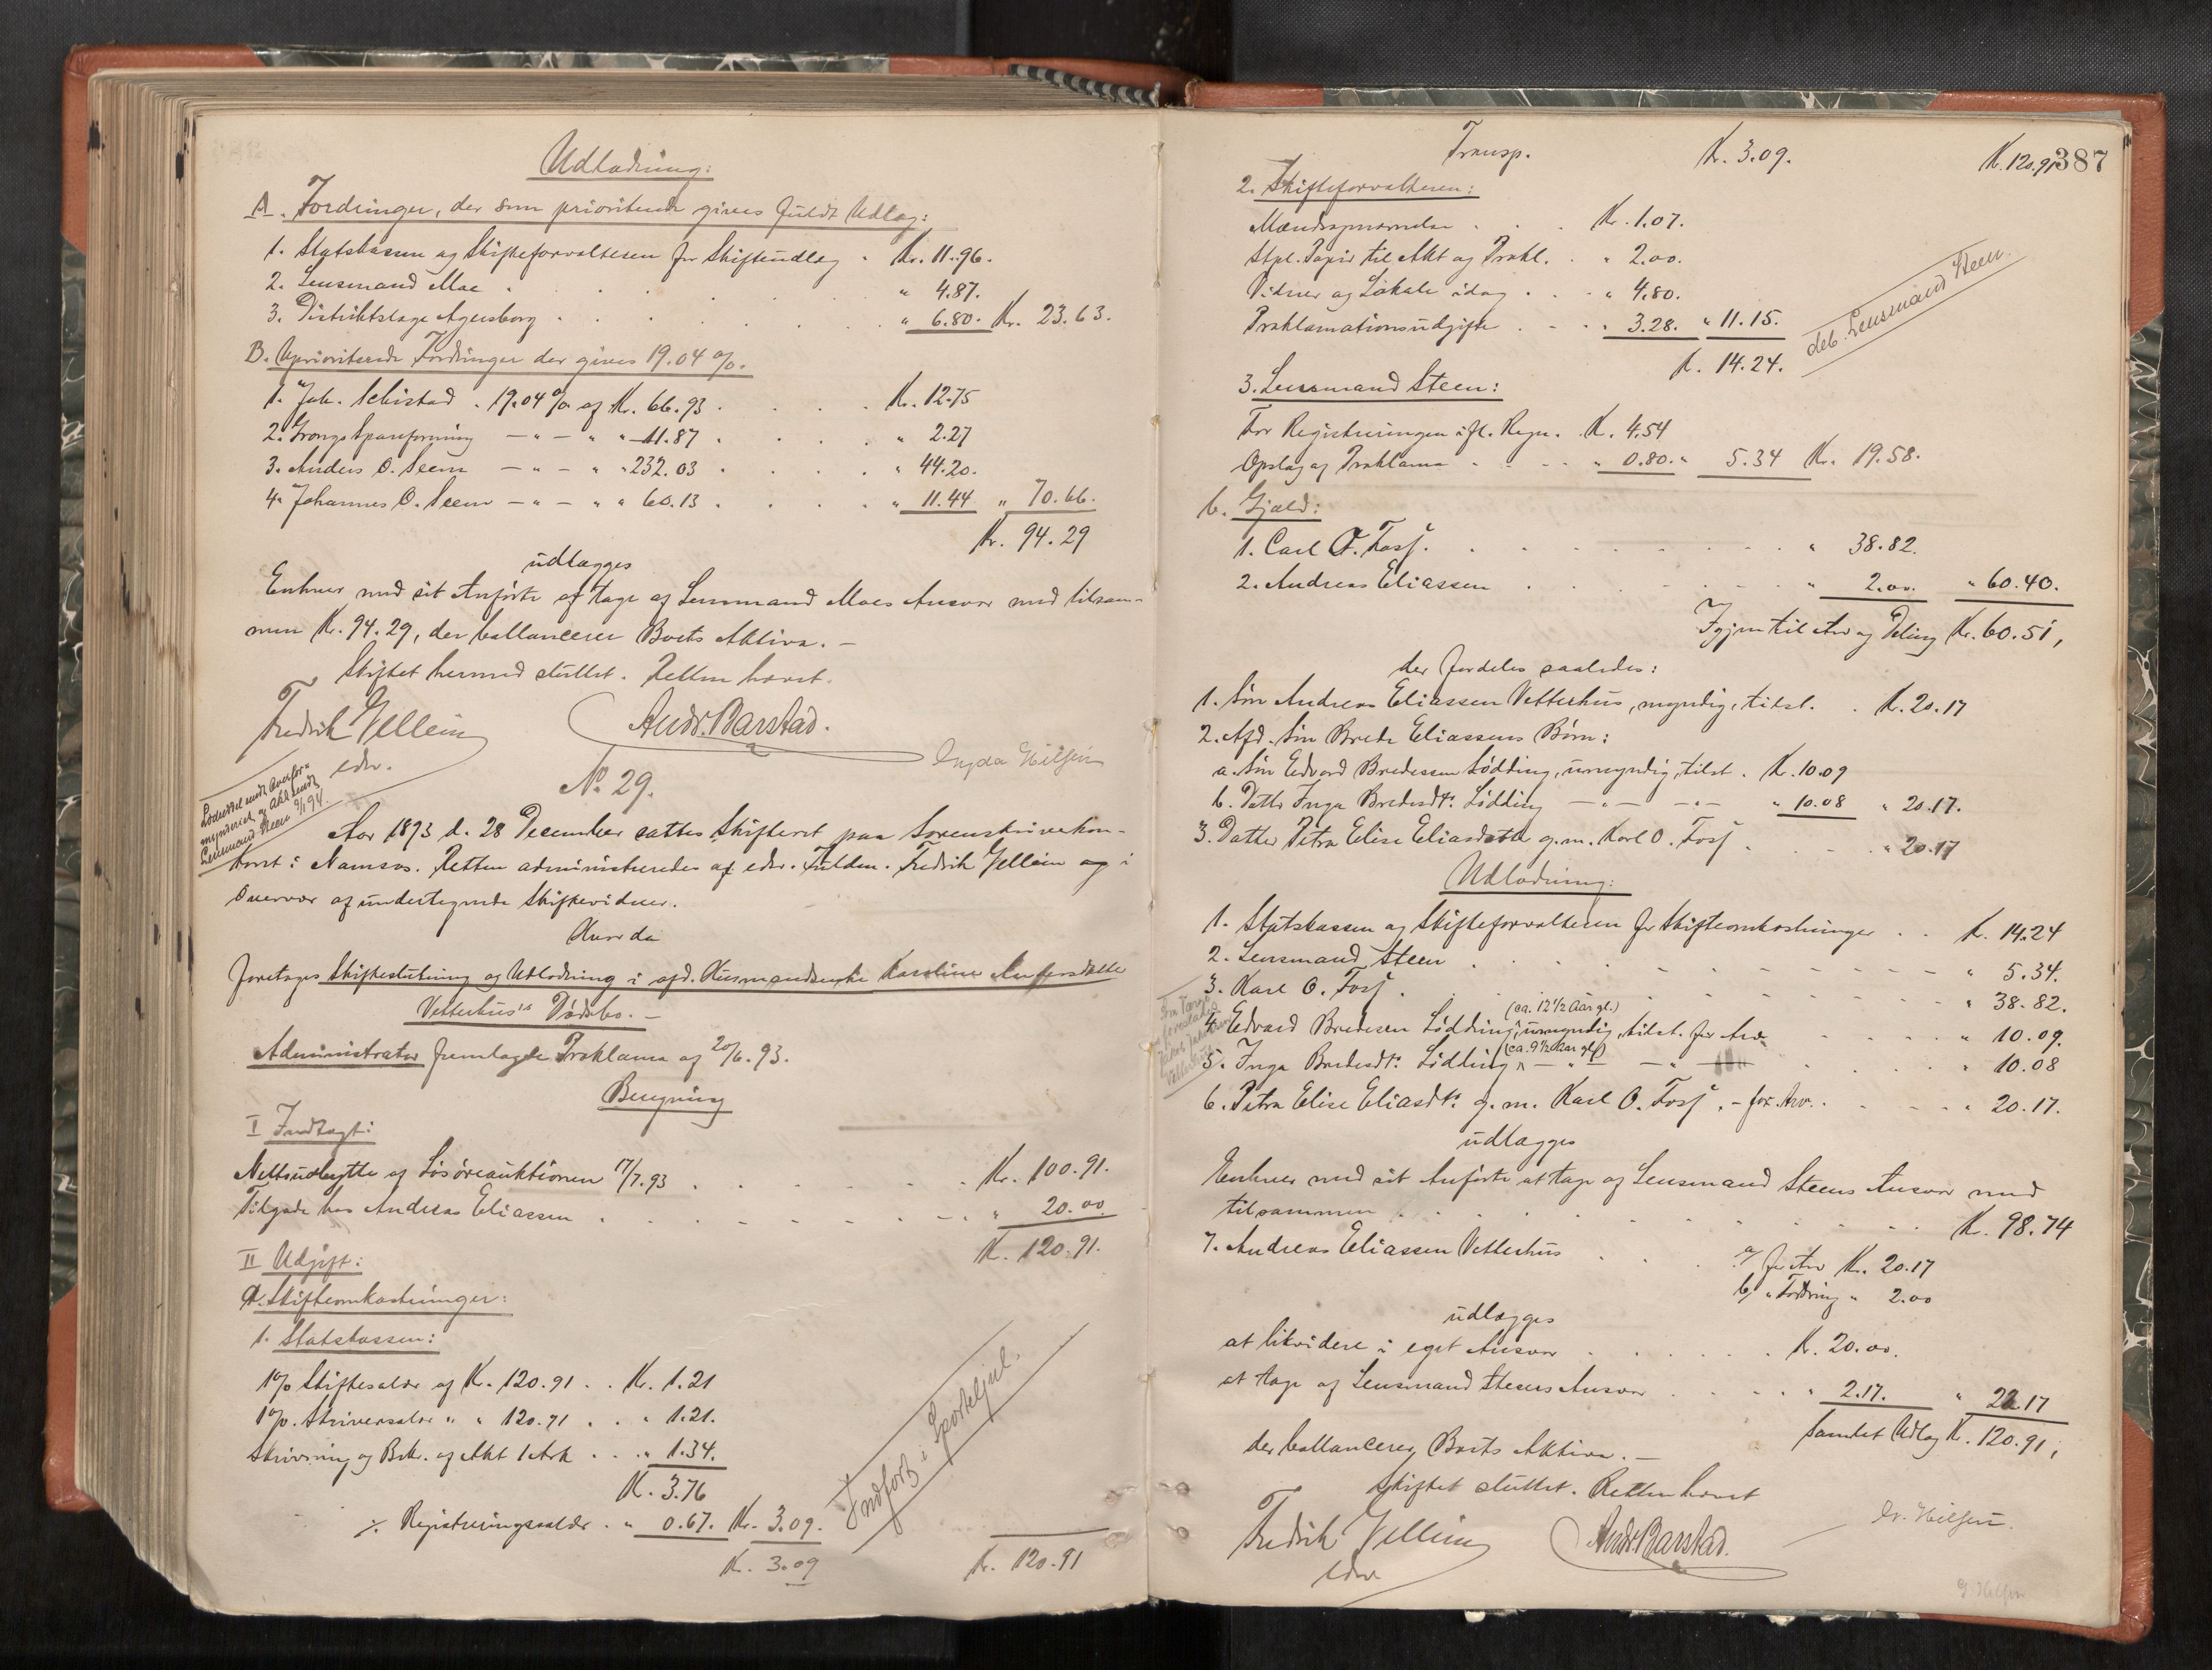 Udlodning:
A. Fordringer, der som prioriterede gives fuldt Udlæg:
1. Statskassen og Skifteforvalteren for Skifteudlæg " Kr. 11.96.
2. Lensmand Moe . . . . . " 4.87.
3. Distriktslæge Agersborg . . . . . " 6.80. Kr. 23.63.
B. Uprioriterede Fordringer der gives 19.04 %.
1. Joh. Schistad . 19.04 % af Kr. 66.93 . . . . Kr. 12.75
2. Grongs Spareforening — " — " " 11.87 . . . . " 2.27
3. Anders O. Seem — " — " " 232.03 . . . . " 44.20.
4. Johannes O. Seem — " — " " 60.13 . . . . " 11.44 " 70.66.
Kr. 94.29
udlægges
Enhver med sit Anførte at tage af Lensmand Moes Ansvar med tilsam-
men Kr. 94.29, der ballancerer Boets Aktiva. —
Skiftet hermed sluttet. Retten hævet.
Fredrik Vellein
edsv.
Andr. Barstad.
No. 29.
Lensmand Steen
Aar 1893 d. 28 December sattes Skifteret paa Sorenskriverkon-
toret i Namsos. Retten administreredes af edsv. Fuldm. Fredrik Vellein og i
Overvær af undertegnede Skiftevidner.
Hvor da
foretoges Skifteslutning og Udlodning i afd. Husmandsenke Karoline Andersdatter
Vetterhus's Dødsbo. —
Administrator fremlagde Proklama af 20/6. 93.
Beregning
I Indtægt:
Nettoudbytte af Løsøreauktionen 17/7. 93 . . . . Kr. 100.91.
Tilgode hos Andreas Eliassen . . . . " 20.00
K. 120.91.
II Udgift:
a. Skifteomkostninger:
1. Statskassen:
1 % Skiftesalær af Kr. 120.91 . . Kr. 1.21
1 %. Skriversalær " " 120.91 . . " 1.21.
Skrivning og Besk. af Akt 1 Ark . . " 1.34.
K. 3.76
÷ Registreringssalær . " 0.67. Kr. 3.09.
K. 3.09
Indført i Sporteljul.
Kr. 120.91
Transp. Kr. 3.09. K. 120.91
387
2. Skifteforvalteren:
Mændsopnævnelse . . . Kr. 1.07.
Stpl. Papir til Akt og Prokl. . " 2.00.
Vidner og Lokale idag . . . " 4.80.
Proklamationsudgifter . . . " 3.28. " 11.15.
K. 14.24.
deb. Lensmand Steen.
3. Lensmand Steen:
For Registreringen ifl. Regn. . K. 4.54
Opslag af Proklama . . . . " 0.80. " 5.34 Kr. 19.58.
b. Gjæld:
1. Carl O. Fosj. . . . . " 38.82.
2. Andreas Eliassen . . . . " 2.00. " 60.40.
Igjen til Arv og Deling Kr. 60.51,
der fordeles saaledes:
1. Søn Andreas Eliassen Vetterhus, myndig, tilst. . K. 20.17
2. Afd. Søn Brede Eliassens Børn:
a. Søn Edvard Bredesen Lødding, umyndig, tilst. . K. 10.09
b. Datter Inga Bredesdtr. Lødding — " — — " — " 10.08 " 20.17.
3. Datter Petra Elise Eliasdatter g. m. Karl O. Fosj . . . " 20.17
Udlodning:
1. Statskassen og Skifteforvalteren for Skifteomkostninger . . K. 14.24
2. Lensmand Steen . . . . " 5.34.
3. Karl O. Fosj . . . . " 38.82.
(ca. 12 1/2 Aar gl.)
4. Edvard Bredesen Lødding, umyndig, tilst. for Arv . . . " 10.09.
(ca. 9 1/2 Aar gl.)
5. Inga Bredesdtr. Lødding — " — — " — . . . " 10.08
6. Petra Elise Eliasdtr. g. m. Karl O. Fosj. — for Arv. . . . " 20.17.
udlægges
Enhver med sit Anførte at tage af Lensmand Steens Ansvar med
tilsammen . . . . K. 98.74
7. Andreas Eliassen Vetterhus . . . a/ for Arv Kr. 20.17
b/ " Fordring " 2.00
udlægges
at likvidere i eget Ansvar . . . . K. 20.00.
at tage af Lensmand Steens Ansvar . . . . " 2.17. " 22.17
Samlet Udlæg K. 120.91,
der ballancerer Boets Aktiva. —
Skiftet sluttet. Retten hævet
Fredrik Vellein
edsv
Andr. Barstad.